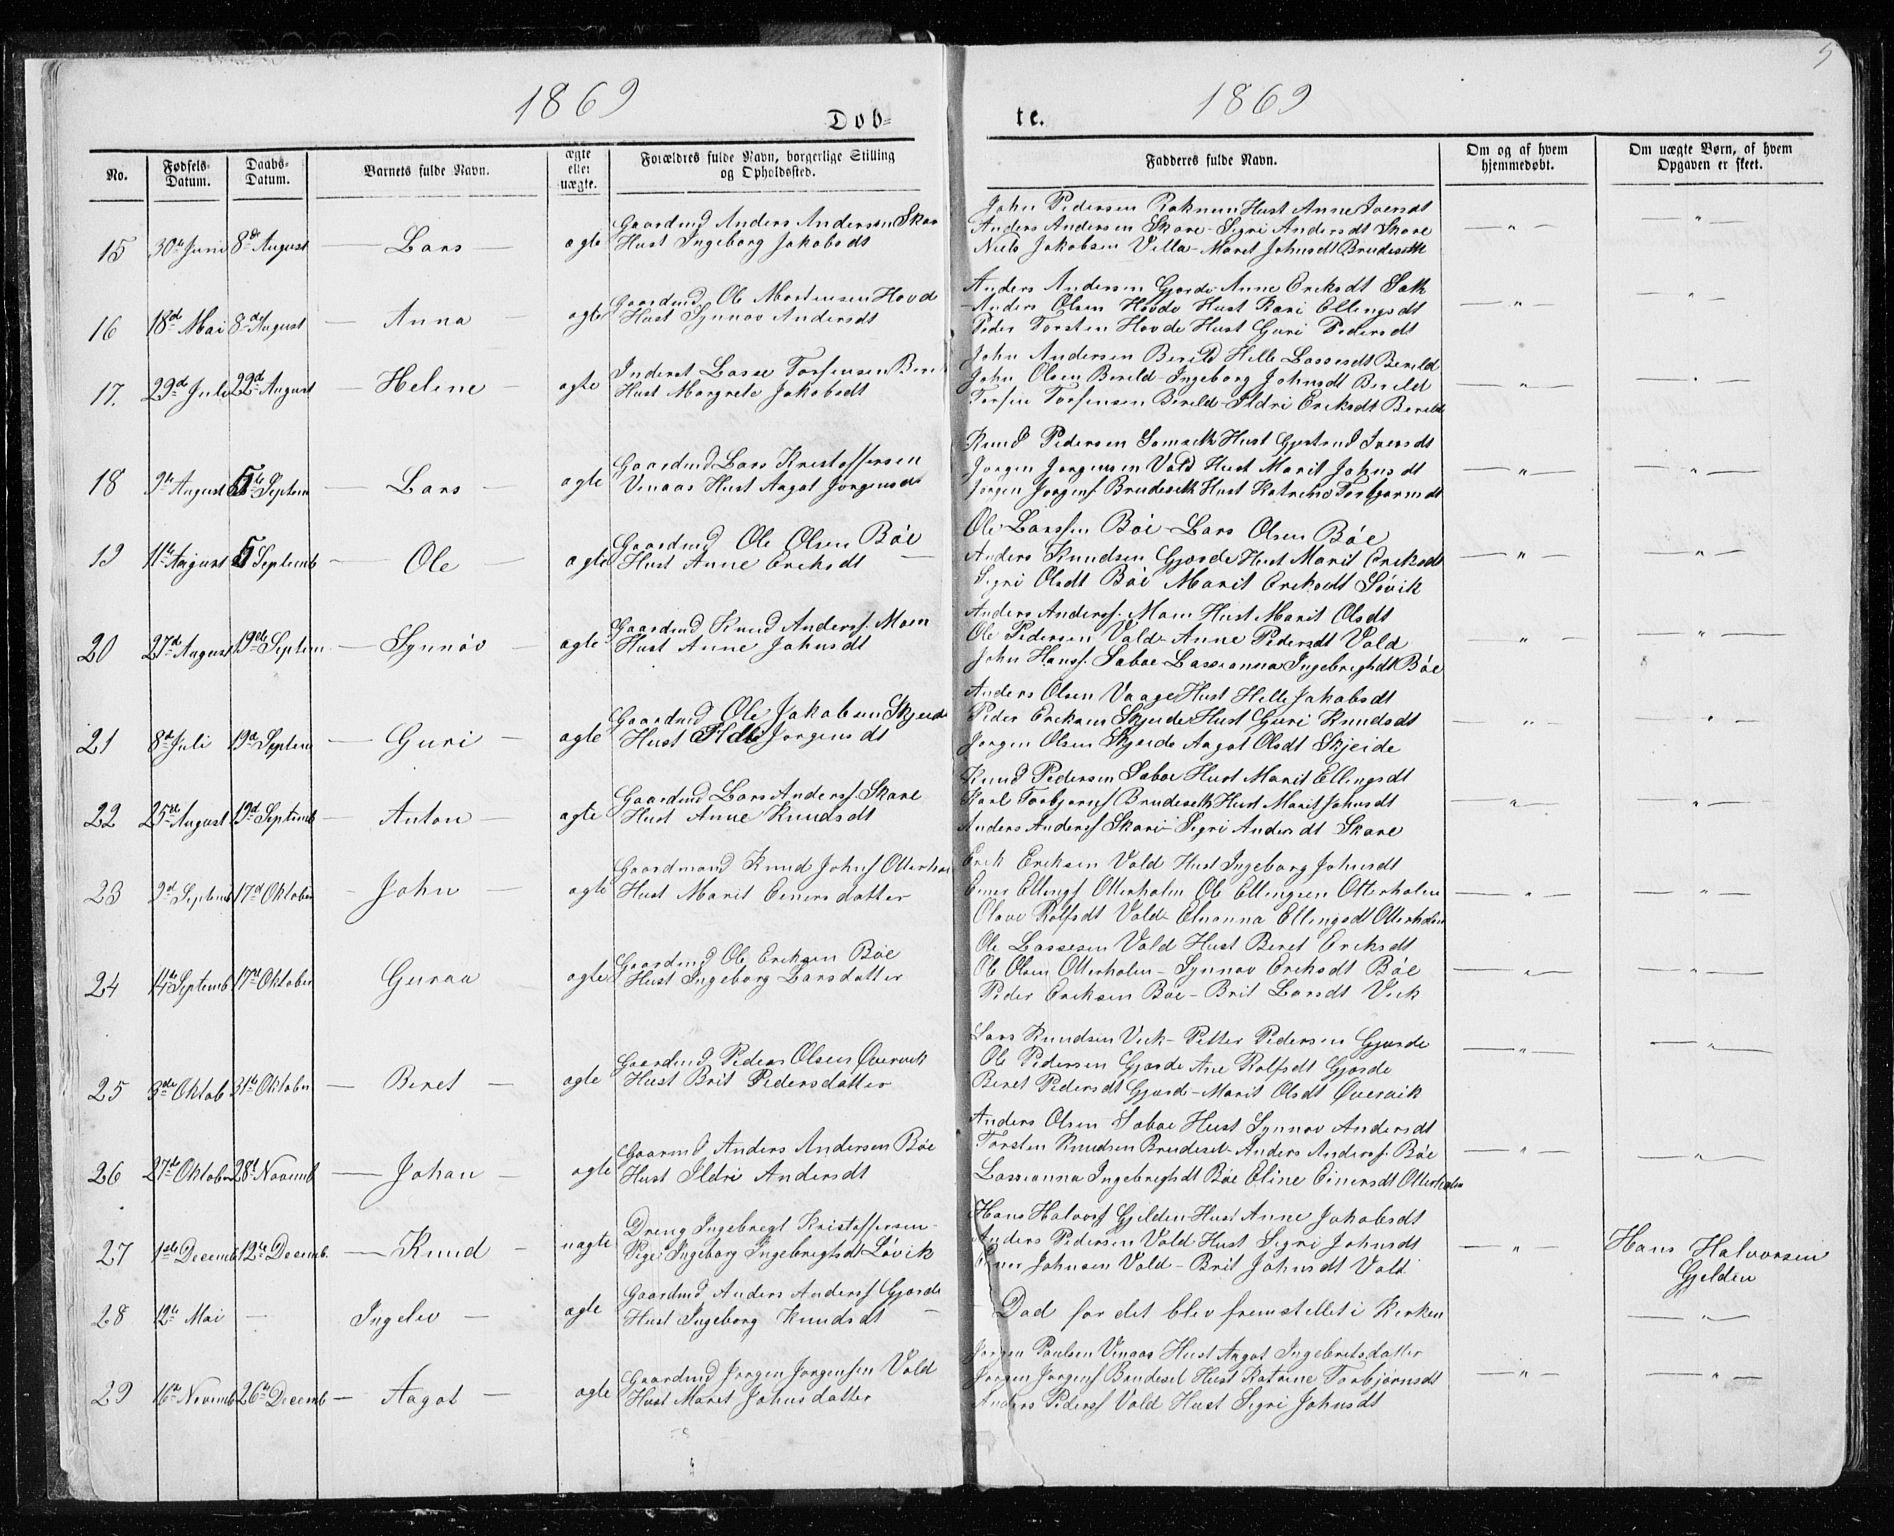 5
1869 1869
Døb= te.
No. Fødsels-Datum. Daabs-Datum. Barnets fulde Navn. ægte eller uægte. Forældres fulde Navn, borgerlige Stilling og Opholdssted. Fadderes fulde Navn. Om og af hvem hjemmedøbt. Om uægte Børn, af hvem Opgaven er skeet.
John Pedersen Hust Anne Iversdt
15 30te Juni 8de August — Lars — ægte Gaardmd Anders Andersen Skare
Hust Ingeborg Jakobsdt
Anders Andersen Skare - Sigri Andersdt Skare — " — — " —
Niels Jakobsen Villa - Marit Johnsdt Brudeseth
16 18de Mai 8de August — Anna — ægte Gaardmd Ole Mortensen Hovde
Hust Synnøv Andersdt
Anders Andersen Gjørde Anne Eriksdt
Anders Olsen Hovde Hust Kari Ellingsdt — " — — " —
Peder Torsten Hovde Hust Guri Pedersdt
17. 29de Juli 22de August — Helene — ægte Inderst Lasse Torfinsen
Hust Margrete Jakobsdt
John Andersen Bereld Hille Lassesdt Bereld
John Olsen Bereld - Ingeborg Johnsdt Bereld — " — — " —
Torfin Torfinsen Bereld - Ildri Eriksdt Bereld
18 9de August 5te Septem — Lars — ægte Gaardmd Lars Kristoffersen
Vinaas Hust Aagot Jørgensdt
Knud Pedersen Hust Gjertrud Iversdt
Jørgen Jørgensen Vold Hust Marit Johnsdt — " — — " —
Jørgen Jørgens Brudeseth Hust Katrine Torbjørnsdt
19 11te August 5 Septemb — Ole — ægte Gaardmd Ole Olsen Bøe
Hust Anne Eriksdt
Ole Larssen Bøe - Lars Olsen Bøe
Anders Knudsen Gjørde Hust Marit Eriksdt — " — — " —
Sigri Olsdt Bøe Marit Eriksdt Løvik
20 27de August 19de Septem — Synnøv — ægte Gaardmd Knud Anders. Moen
Hust Anne Johnsdt
Anders Anders. Moen Hust Marit Olsdt
Ole Pedersen Vold - Anne Pedersdt Vold " — " —
John Hans. Sabøe Lassianna Ingebrigtsdt Bøe
21 8de Juli 19de Septem — Guri — ægte Gaardmd Ole Jakobsen Skjeide
Hust Ildri Jørgensdt
Anders Olsen Vaage Hust Hille Jakobsdt
Peder Eriksen Skjeide Hust Guri Knudsdt — " — " —
Jørgen Olsen Skjeide Aagot Olsdt Skjeide
22 25de August 19de Septemb — Anton — ægte Gaardmd Lars Anders. Skare
Hust Anne Knudsdt
Knud Pedersen Sabøe Hust Marit Ellingsdt
Karl Torbjørns Brudeseth Hust Marit Johnsdt — " — — " —
Anders Anders Skare - Sigri Andersdt Skare
23 2de Septemb 17de Oktober - John — ægte Gaardmand Knud Johns Otterholm
Hust Marit Einersdatter
Erik Eriksen Vold Hust Ingeborg Johnsdt
Einer Ellings Otterholm Ole Ellingsen Otterholm — " — — " —
Olave Rolfsdt Vold - Elianna Ellingsdt Otterholm
24 14de Septemb 17de Oktober Guraa ægte Gaardmd Ole Eriksen Bøe
Hust Ingeborg Larsdatter
Ole Lassesen Vold Hust Beret Eriksdt
Ole Olsen Otterholm - Synnøv Eriksdt Bøe — " — — " —
Peder Eriksen Bøe - Brit Larsdt Vik
25 3de Oktob 31te Oktober — Beret — ægte Gaardmd Peder Olsen Øvervik
Hust Brit Pedersdatter
Lars Knudsen Vik - Petter Pedersen Gjørde
Ole Pedersen Gjørde Ane Rolfsdt Gjørde — " — — " —
Beret Pedersdt Gjørde - Marit Olsdt Øvervik
26 27de Oktober 28de Novemb — Johan — ægte Gaarmd Anders Andersen Bøe
Hust Ildri Andersdt
Anders Olsen Sabøe Hust Synnøv Andersdt
Torsten Knudsen Brudeset - Anders Anders. Bøe — " — — " —
Lassianna Ingebrigtsdt Bøe Eline Einersdt Otterholm
27 1ste Decemb 12te Decemb. — Knud — uægte Dreng Ingebregt Kristoffersen -
Pige Ingeborg Ingebrigtsdt Løvik
Hans Halvors Gjelden Hust Anne Jakobsdt
Anders Pedersen Vold Hust Sigri Johnsdt — " — Hans Halvorsen
Einer Johnsen Vold - Brit Johnsdt Vold Gjelden
28 12te Mai — Ingelev — ægte Gaardmd Anders Anders Gjørde
Hust Ingeborg Knudsdt —
Død før det blev fremstillet i Kirken — " —
29 16de Novemb 26de Decemb — Aagot — ægte Gaardmd Jørgen Jørgensen Vold
Hust Maret Johnsdatter
Jørgen Paulsen Vinaas Hust Aagot Ingebretsdatter
Jørgen Jørgens Brudeset Hust Katrine Torbjørnsdt — " — — " —
Anders Peders Vold Hust Sigri Johnsdt